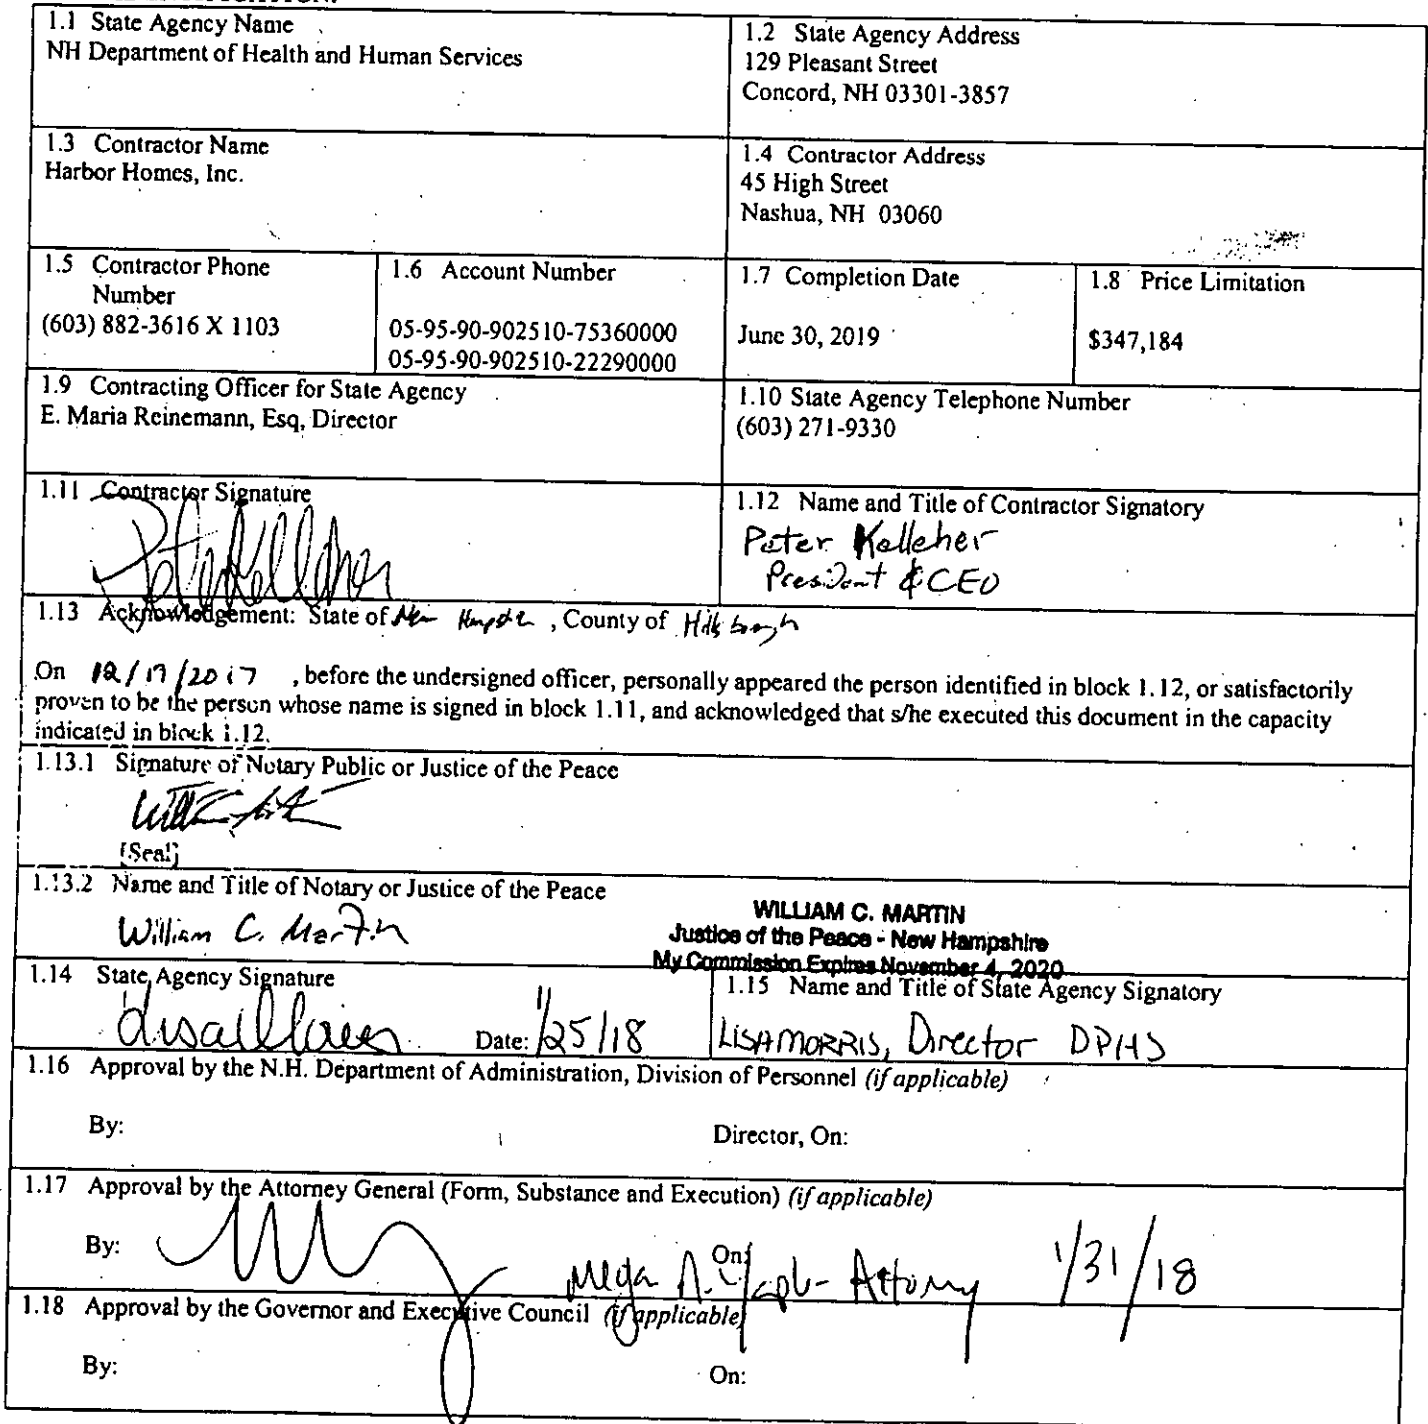 1.1 State Agency Name
NH Department of Health and Human Services
1.2 State Agency Address
129 Pleasant Street
Concord, NH 03301-3857
1.3 Contractor Name
Harbor Homes, Inc.
1.4 Contractor Address
45 High Street
Nashua, NH 03060
1.5 Contractor Phone
Number
(603) 882-3616 X 1103
1.6 Account Number
05-95-90-902510-75360000
05-95-90-902510-22290000
1.7 Completion Date
June 30, 2019
1.8 Price Limitation
$347,184
1.9 Contracting Officer for State Agency
E. Maria Reinemann, Esq, Director
1.10 State Agency Telephone Number
(603) 271-9330
1.11 Contractor Signature
Peter Kelleher
1.12 Name and Title of Contractor Signatory
Peter Kelleher
President & CEO
1.13 Acknowledgement: State of New Hampshire , County of Hillsborough
On 12/19/2017 , before the undersigned officer, personally appeared the person identified in block 1.12, or satisfactorily
proven to be the person whose name is signed in block 1.11, and acknowledged that s/he executed this document in the capacity
indicated in block 1.12.
1.13.1 Signature of Notary Public or Justice of the Peace
[Seal]
1.13.2 Name and Title of Notary or Justice of the Peace
William C. Martin
WILLIAM C. MARTIN
Justice of the Peace - New Hampshire
My Commission Expires November 4, 2020
1.14 State Agency Signature
Date: 1/25/18
1.15 Name and Title of State Agency Signatory
LISA MORRIS, Director DPHS
1.16 Approval by the N.H. Department of Administration, Division of Personnel (if applicable)
By:
Director, On:
1.17 Approval by the Attorney General (Form, Substance and Execution) (if applicable)
By:
On:
Attorney 1/31/18
1.18 Approval by the Governor and Executive Council (if applicable)
By:
On: